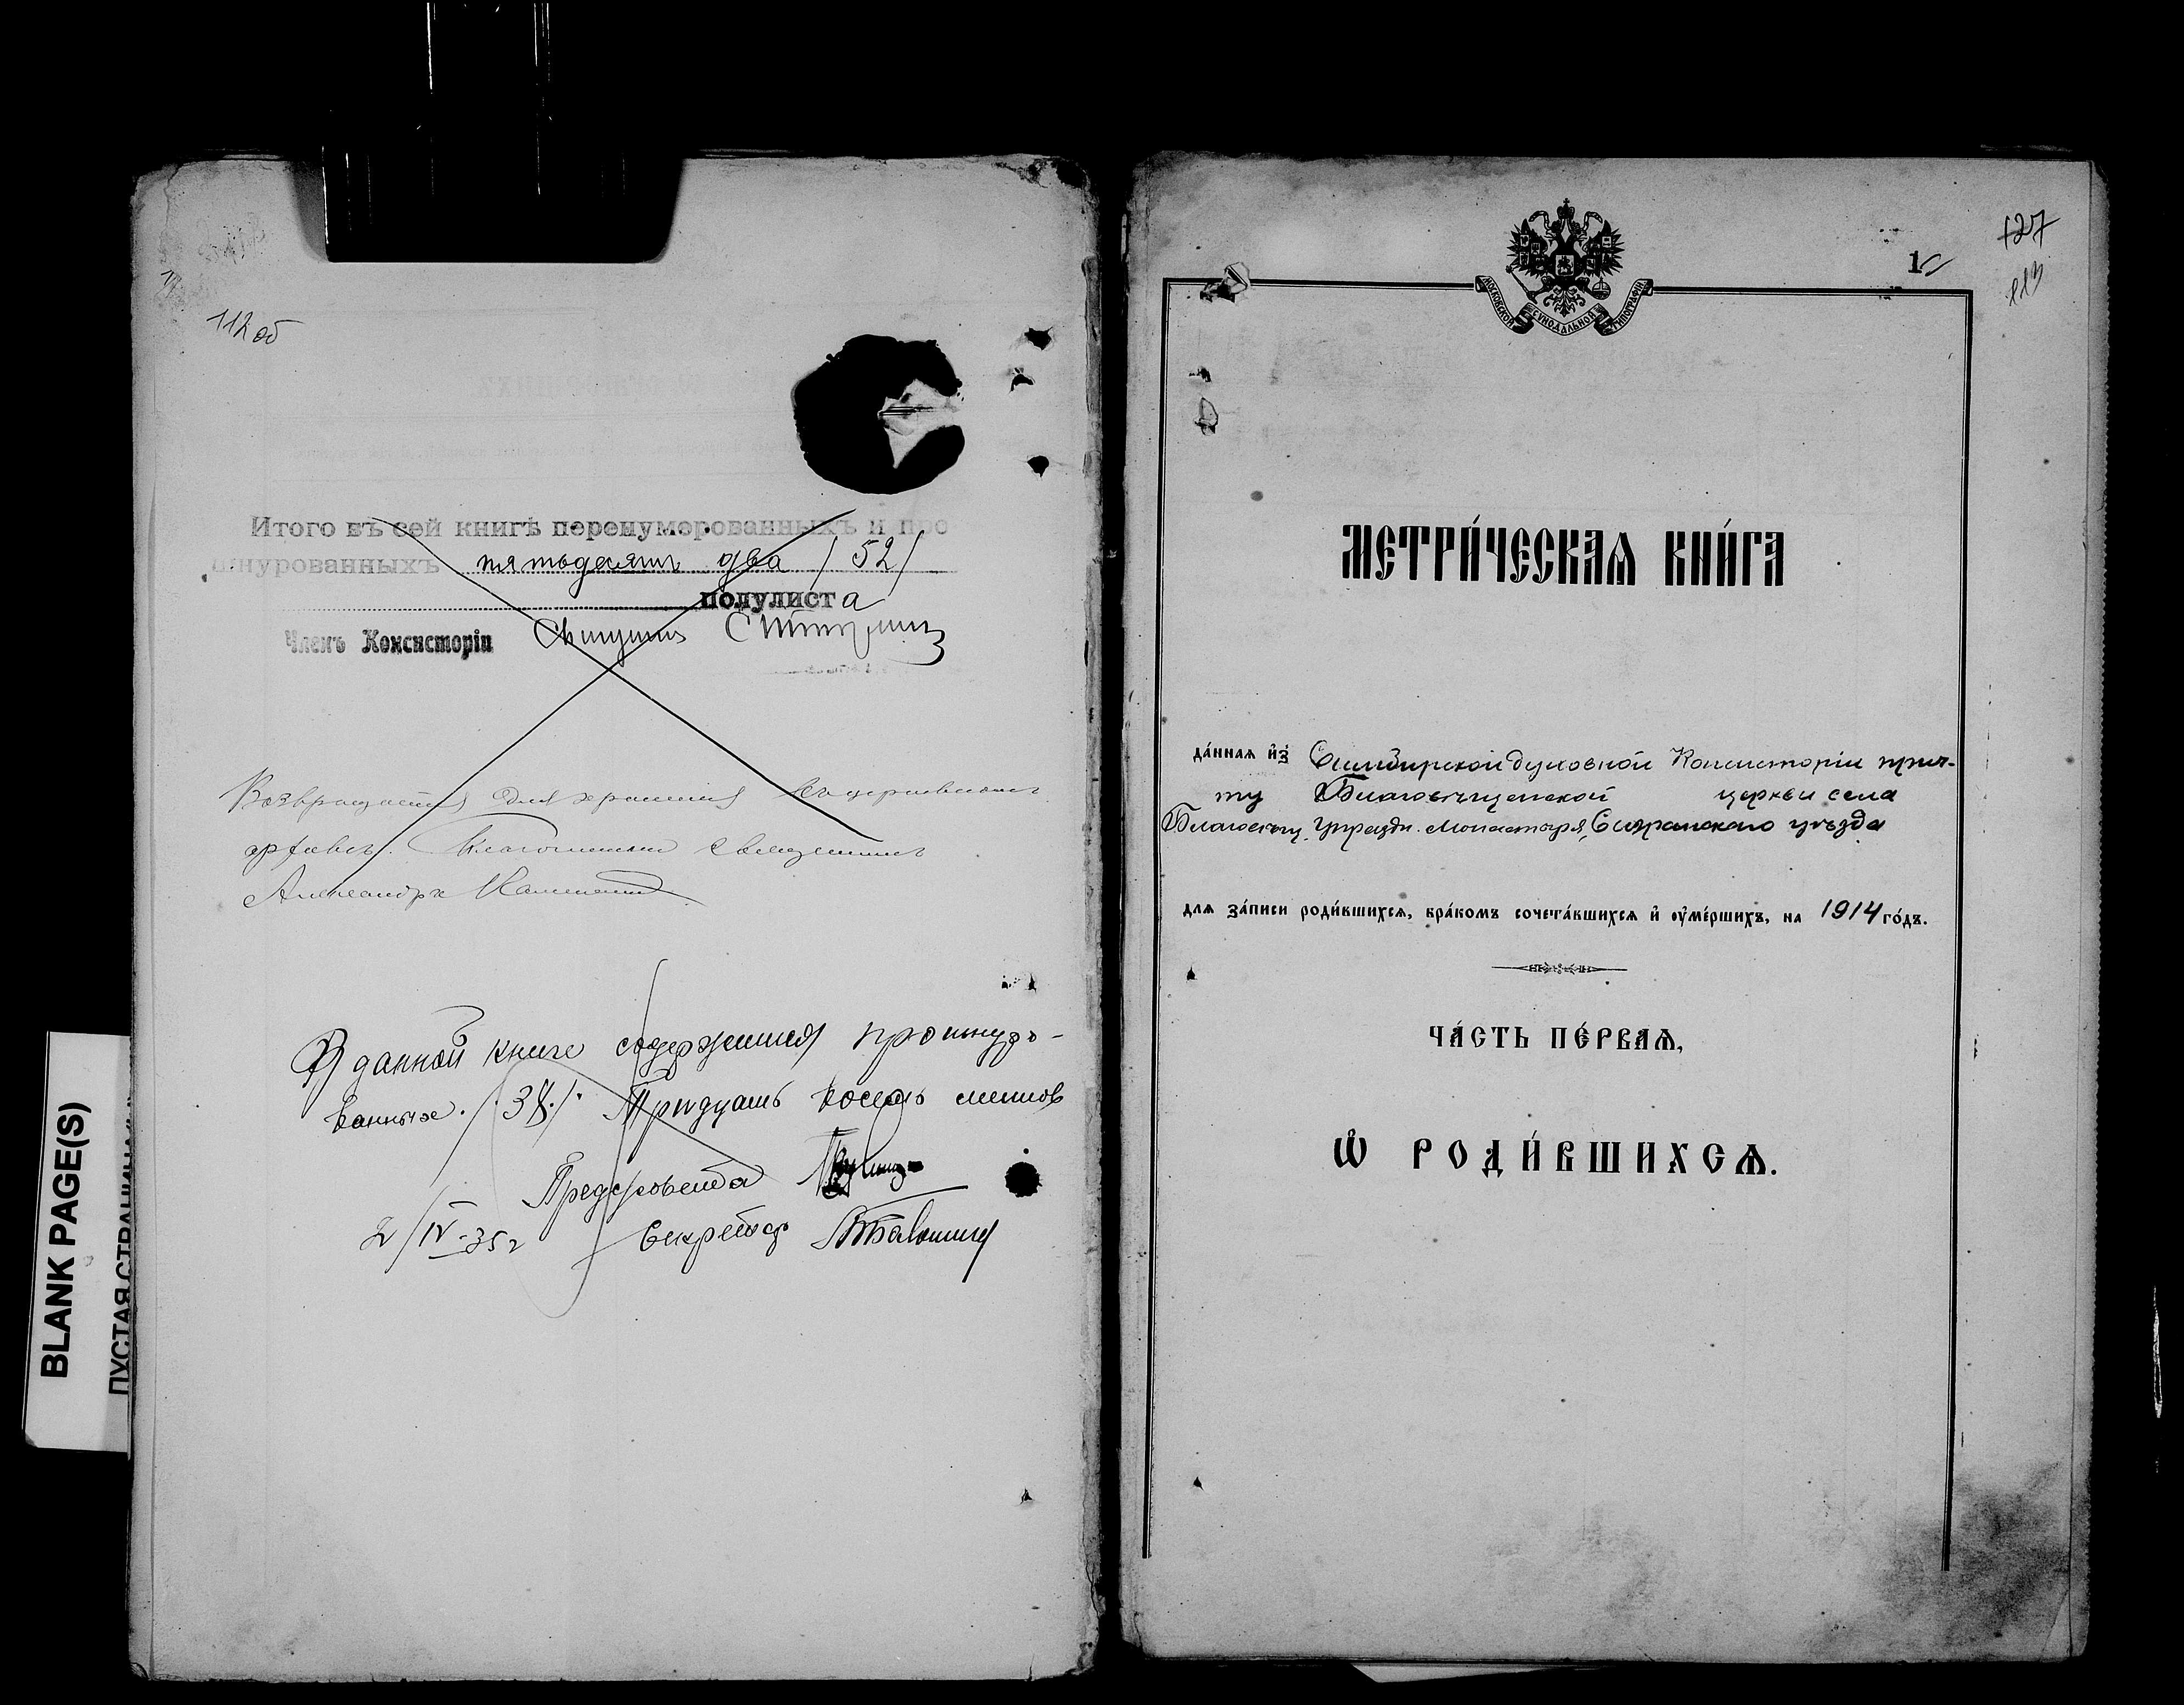 112 об
Итого въ сей книгѣ перенумерованныхъ и про
шнурованныхъ пятьдесятъ два / 52 /
полулиста
Членъ Консисторіи Священникъ
Возвращается для храненія въ церковномъ
архивѣ. Благочинный Священникъ
Александръ
В данной книге содержится прошнуро-
ванные. /38./ Тридцать восемь листов
Предсельсовета
2/IV-35 г Секретар
BLANK PAGE(S)
ПУСТАЯ СТРАНИЦА
127
113
1
МОСКОВСКОЙ СѴНОДАЛЬНОЙ ТИПОГРАФІИ
МЕТРИ́ЧЕСКАѦ КНИ́ГА
да́ннаѧ и҆з̾ Симбирской духовной Консисторіи прич-
ту Благовѣщенской церкви села
Благовѣщ. Упраздн. Монастыря, Сызранскаго уѣзда
длѧ за́писи роди́вшихсѧ, бра́комъ сочета́вшихсѧ и҆ ᲂу҆ме́ршихъ, на 1914 го́дъ.
ЧА́СТЬ ПЕ́РВАѦ,
Ѽ РОДИ́ВШИХСѦ.